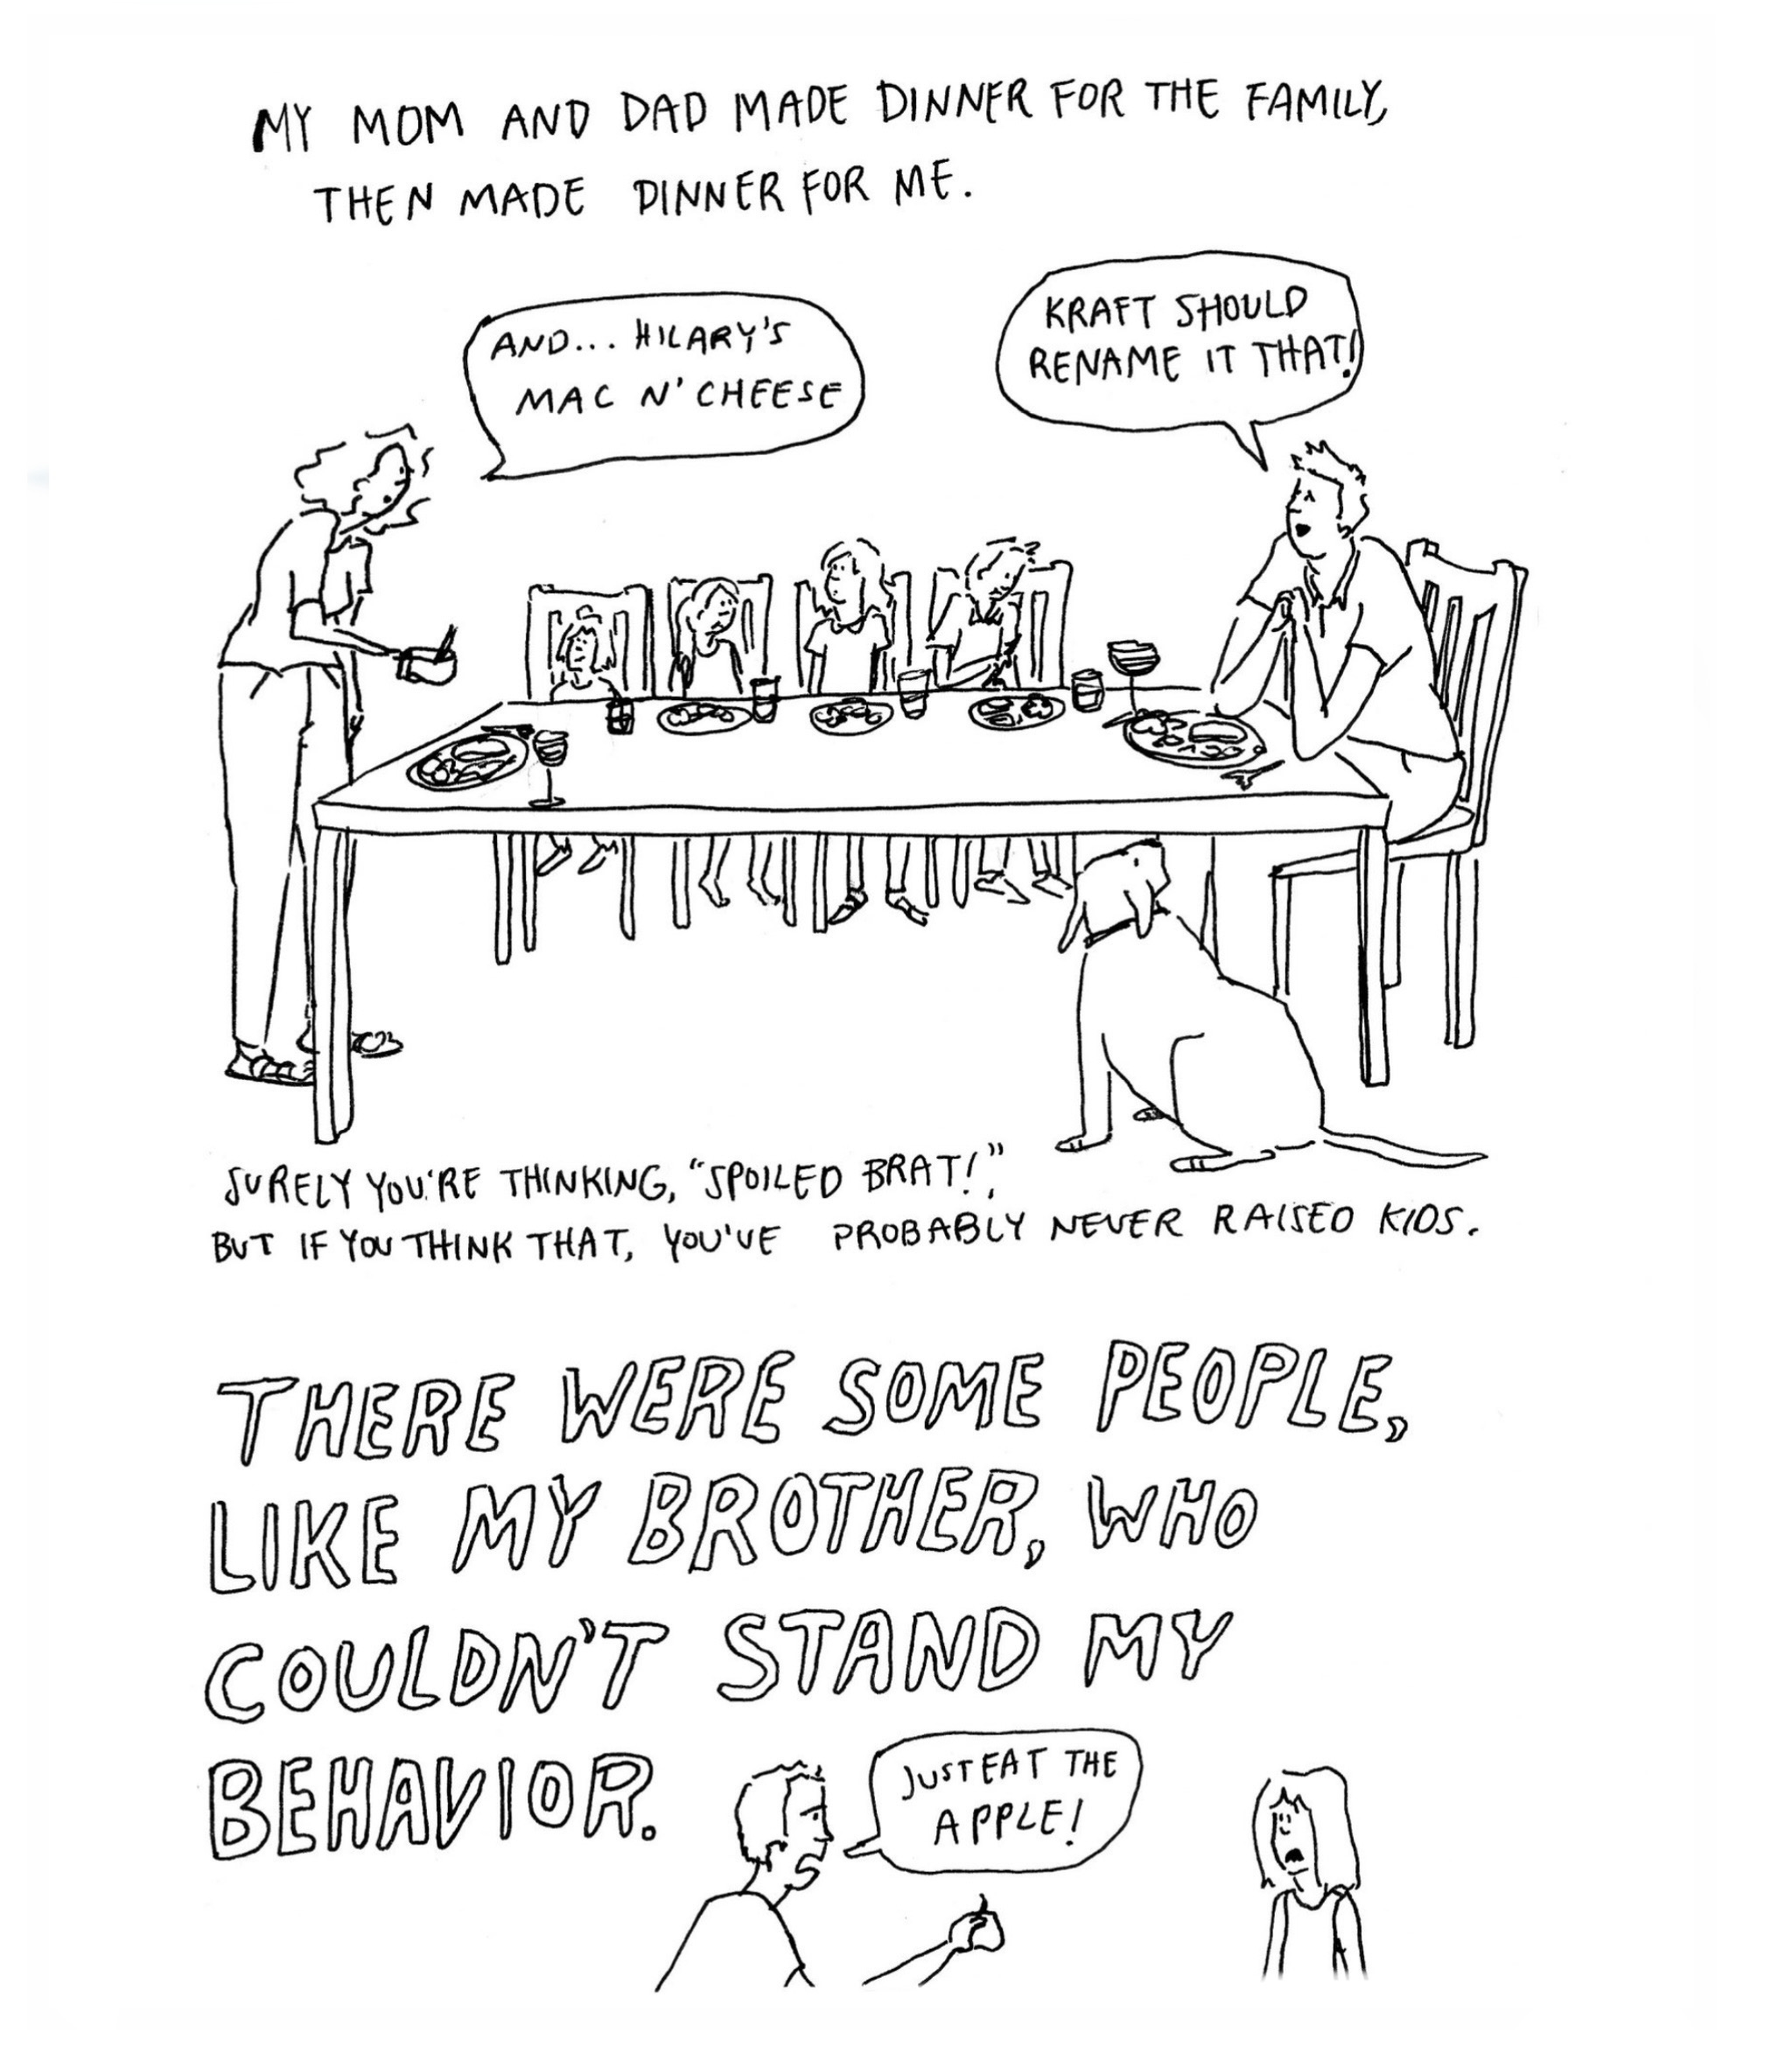 MY MOM AND DAD MADE DINNER FOR THE FAMILY,
THEN MADE DINNER FOR ME.
AND... HILARY'S
MAC N' CHEESE
KRAFT SHOULD
RENAME IT THAT!
SURELY YOU'RE THINKING, "SPOILED BRAT!",
BUT IF YOU THINK THAT, YOU'VE PROBABLY NEVER RAISED KIDS.
THERE WERE SOME PEOPLE,
LIKE MY BROTHER, WHO
COULDN'T STAND MY
BEHAVIOR.
JUST EAT THE
APPLE!